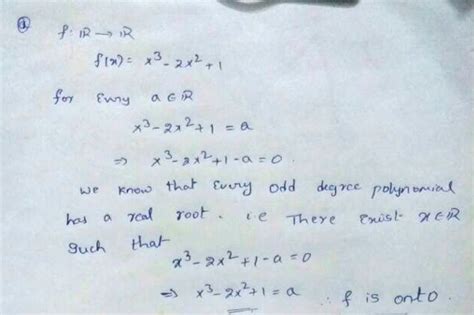 ① f: ℝ → ℝ
f(x) = x³ - 2x² + 1
for Every a ∈ ℝ
x³ - 2x² + 1 = a
⇒ x³ - 2x² + 1 - a = 0.
We know that Every odd degree polynomial
has a real root. i.e There Exist x ∈ ℝ
Such that
x³ - 2x² + 1 - a = 0
⇒ x³ - 2x² + 1 = a ∴ f is onto.